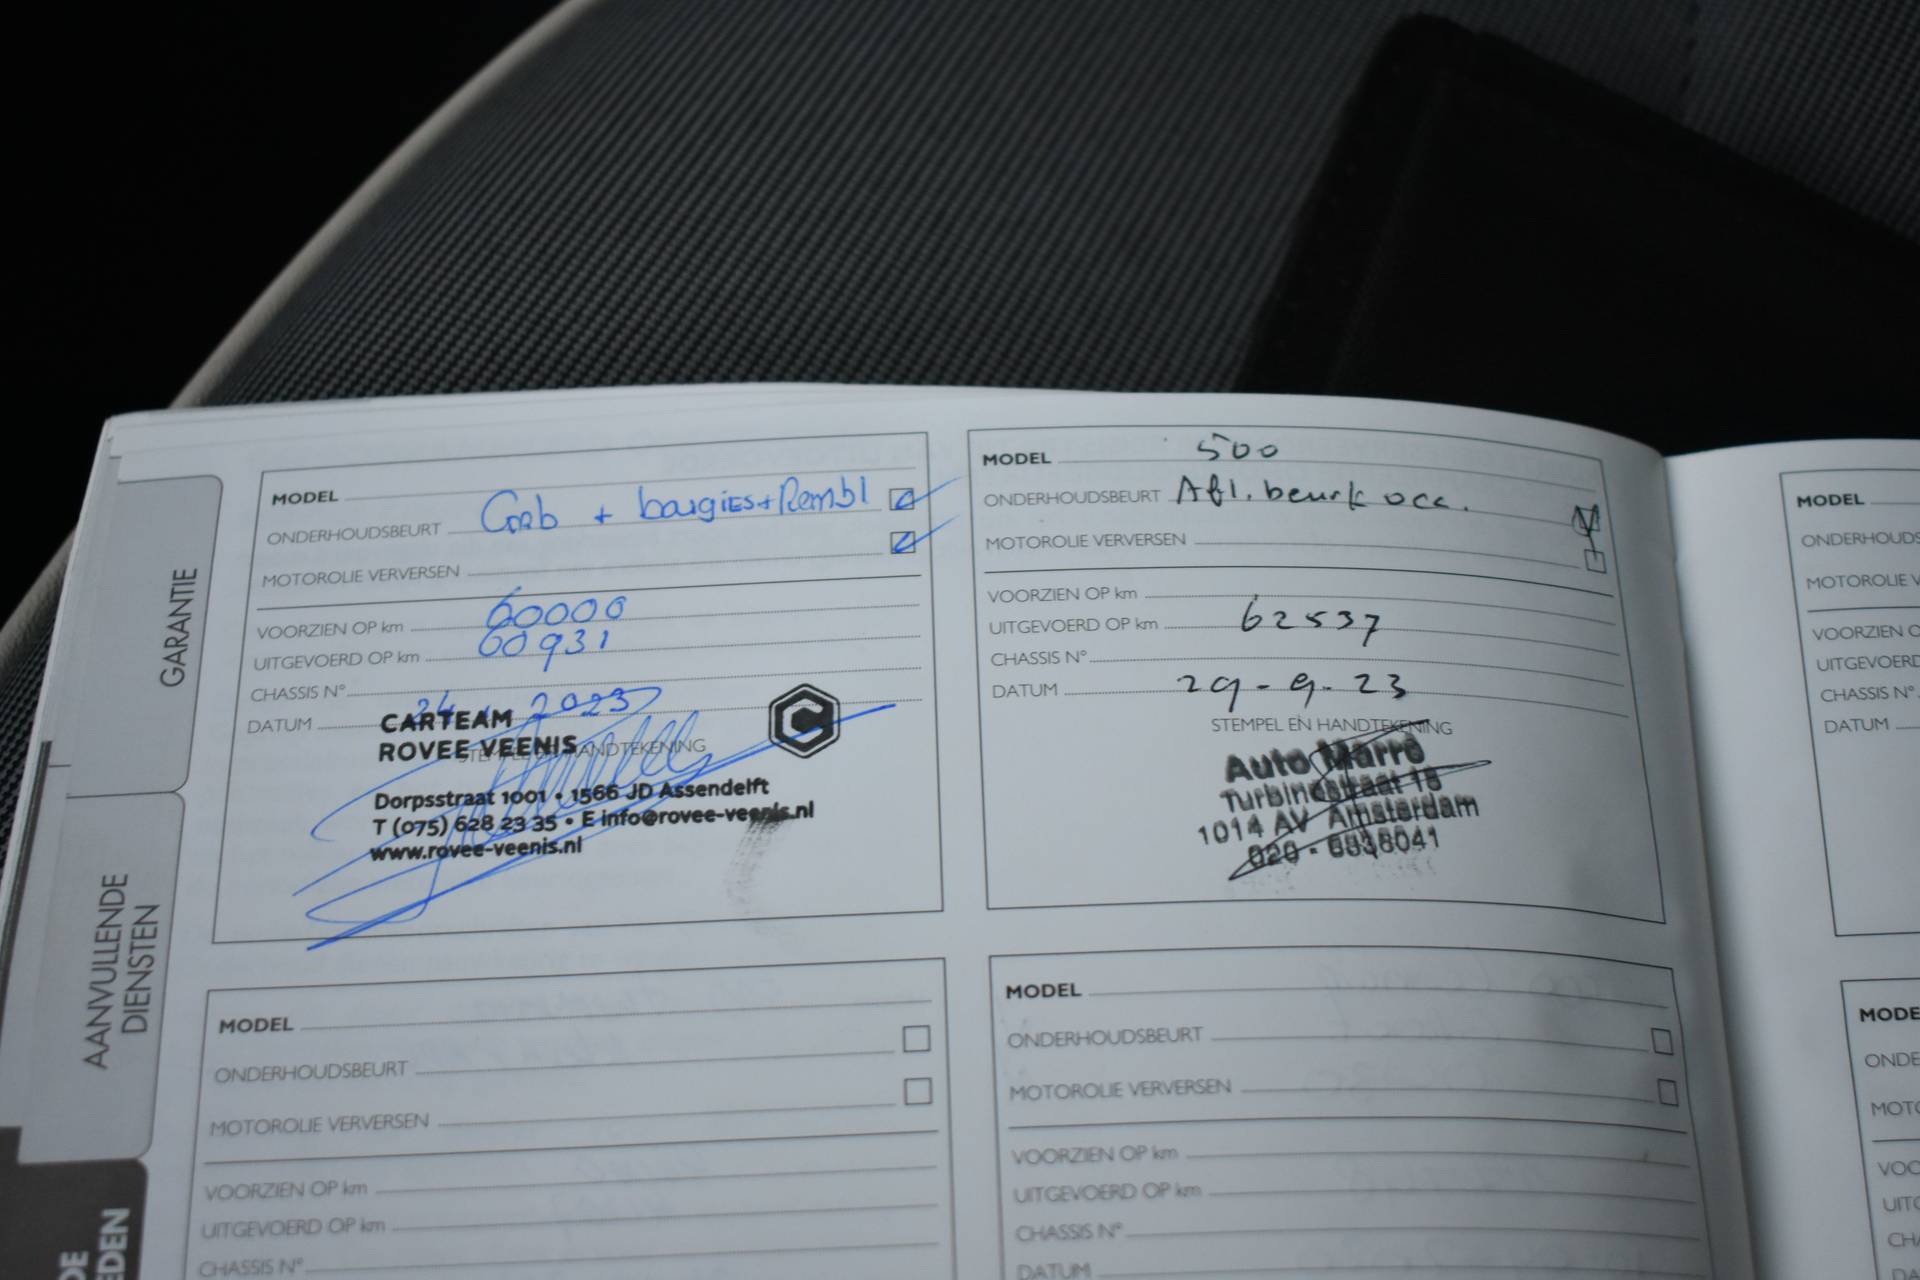 GARANTIE
AANVULLENDE
DIENSTEN
DE
EDEN
MODEL
ONDERHOUDSBEURT + bougies + Rembl
MOTOROLIE VERVERSEN
VOORZIEN OP km 60000
UITGEVOERD OP km 60931
CHASSIS N°
DATUM 24 2023
CARTEAM
ROVEE VEENIS
HANDTEKENING
Dorpsstraat 1001 • 1566 JD Assendelft
T (075) 628 23 35 • E info@rovee-veenis.nl
www.rovee-veenis.nl
MODEL 500
ONDERHOUDSBEURT Afl. beurt occ.
MOTOROLIE VERVERSEN
VOORZIEN OP km
UITGEVOERD OP km 62537
CHASSIS N°
DATUM 29-9-23
STEMPEL EN HANDTEKENING
Auto Marro
Turbinestraat 15
1014 AV Amsterdam
020 -
MODEL
ONDERHOUDSBEURT
MOTOROLIE VERVERSEN
VOORZIEN OP km
UITGEVOERD OP km
CHASSIS N°
MODEL
ONDERHOUDSBEURT
MOTOROLIE VERVERSEN
VOORZIEN OP km
UITGEVOERD OP km
CHASSIS N°
DATUM
MODEL
ONDERHOUDS
MOTOROLIE V
VOORZIEN O
UITGEVOERD
CHASSIS N°
DATUM
MODE
ONDE
MOTO
VOO
UITG
CHA
DA